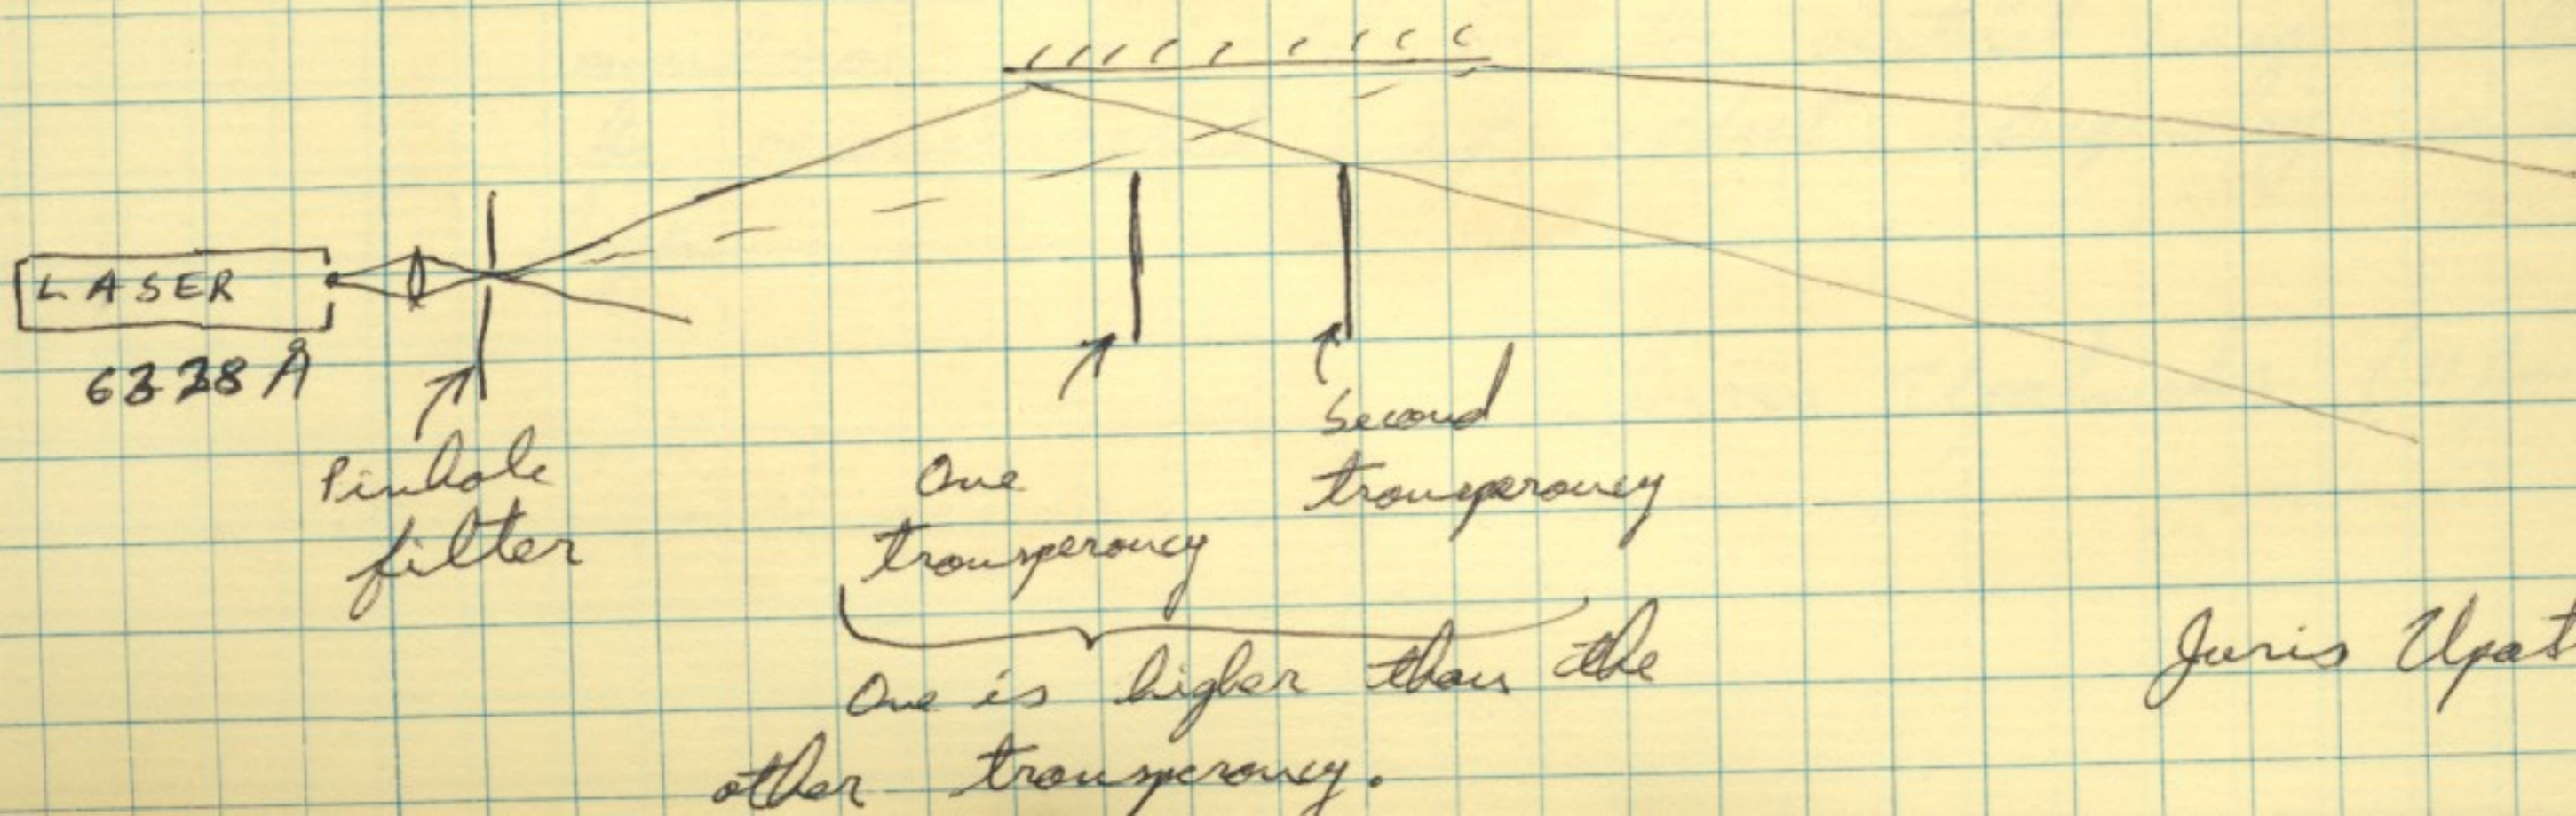 LASER
6328 Å
Pinhole
filter
One
transperancy
Second
transperancy
One is higher than the
other transperancy.
Juris Upat